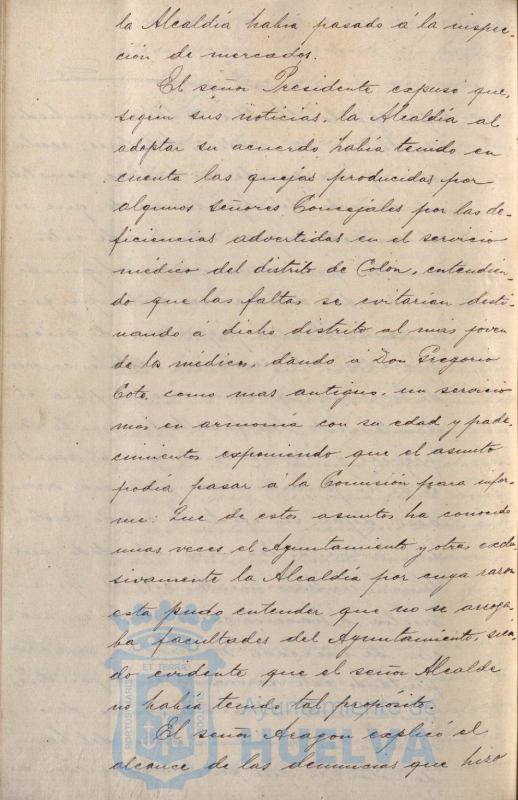 la Alcaldía había pasado á la inspec-
ción de mercados.
El señor Presidente expuso que,
según sus noticias, la Alcaldía al
adoptar su acuerdo había tenido en
cuenta las quejas producidas por
algunos señores Concejales por las de-
ficiencias advertidas en el servicio
médico del distrito de Colón, entendien-
do que las faltas se evitarían desti-
nando á dicho distrito al más joven
de los médicos, dando á Don Gregorio
Coto, como mas antiguo, un servicio
más en armonía con su edad y pade-
cimientos exponiendo que el asunto
podía pasar á la Comisión para infor-
me: Que de estos asuntos ha conocido
unas veces el Ayuntamiento y otras exclu-
sivamente la Alcaldía por cuya razón
esta pudo entender que no se arroga-
ba facultades del Ayuntamiento, sien-
do evidente que el señor Alcalde
no había tenido tal propósito.
El señor Aragon explicó el
alcance de las denuncias que hizo
Ayuntamiento de
HUELVA
PORTUS MARIS ET TERRAE CUSTODIA